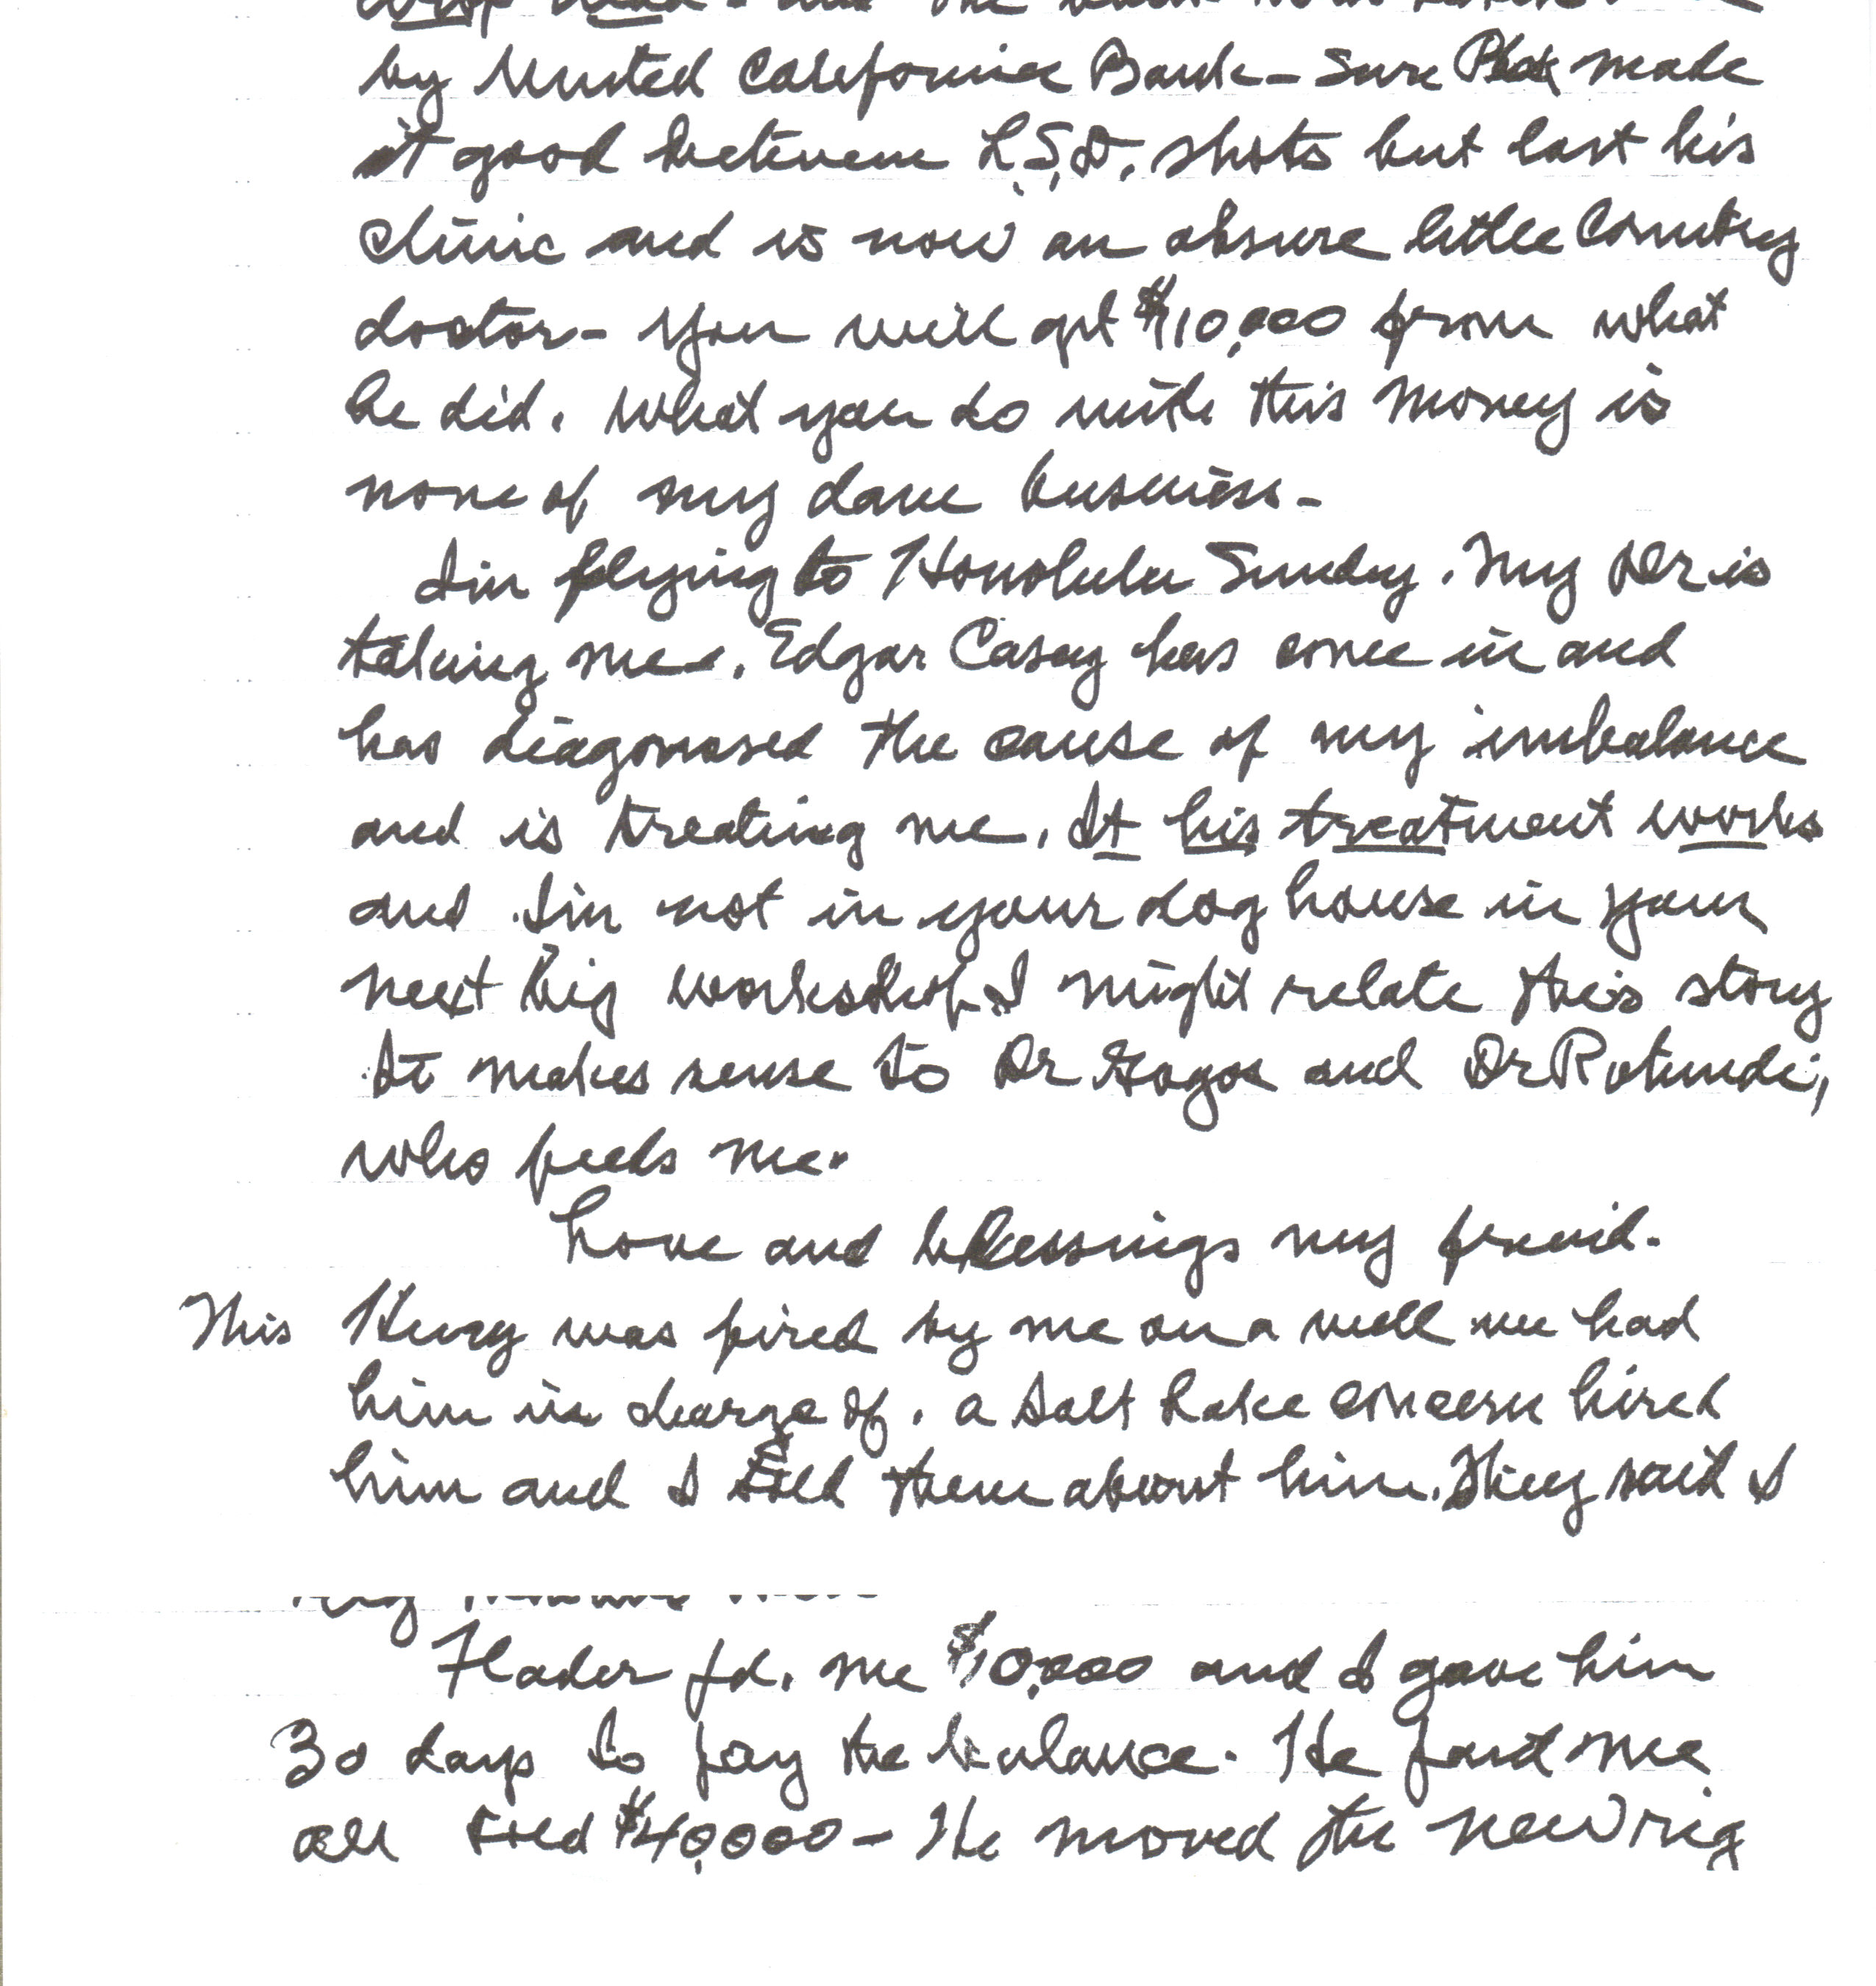 by United California Bank - Sure made
it good betevene L.S.D. shots but lost his
clinic and is now an obsure little Country
doctor - you will get $10,000 from what
he did. What you do with this money is
none of my dam business -
I'm flying to Honolulu Sunday. My Dr is
taking me. Edgar Casey has come in and
has diagonosed the cause of my imbalance
and is treating me. If his treatment works
and I'm not in your dog house in your
next big workshop I might relate this story
It makes sense to Dr and Dr Rotundi,
who feeds me.
Love and blessings my freind.
This Henry was fired by me on a well we had
him in charge of. a Salt Lake concern hired
him and I told them about him. They said I
Flader pd. me $10,000 and I gave him
30 days to pay the balance. He paid me
all told $40,000 - He moved the new rig